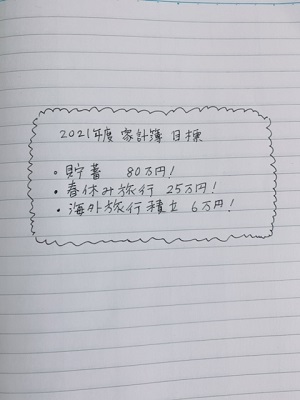 2021年度 家計簿 目標
・貯蓄 80万円!
・春休み旅行 25万円!
・海外旅行積立 6万円!